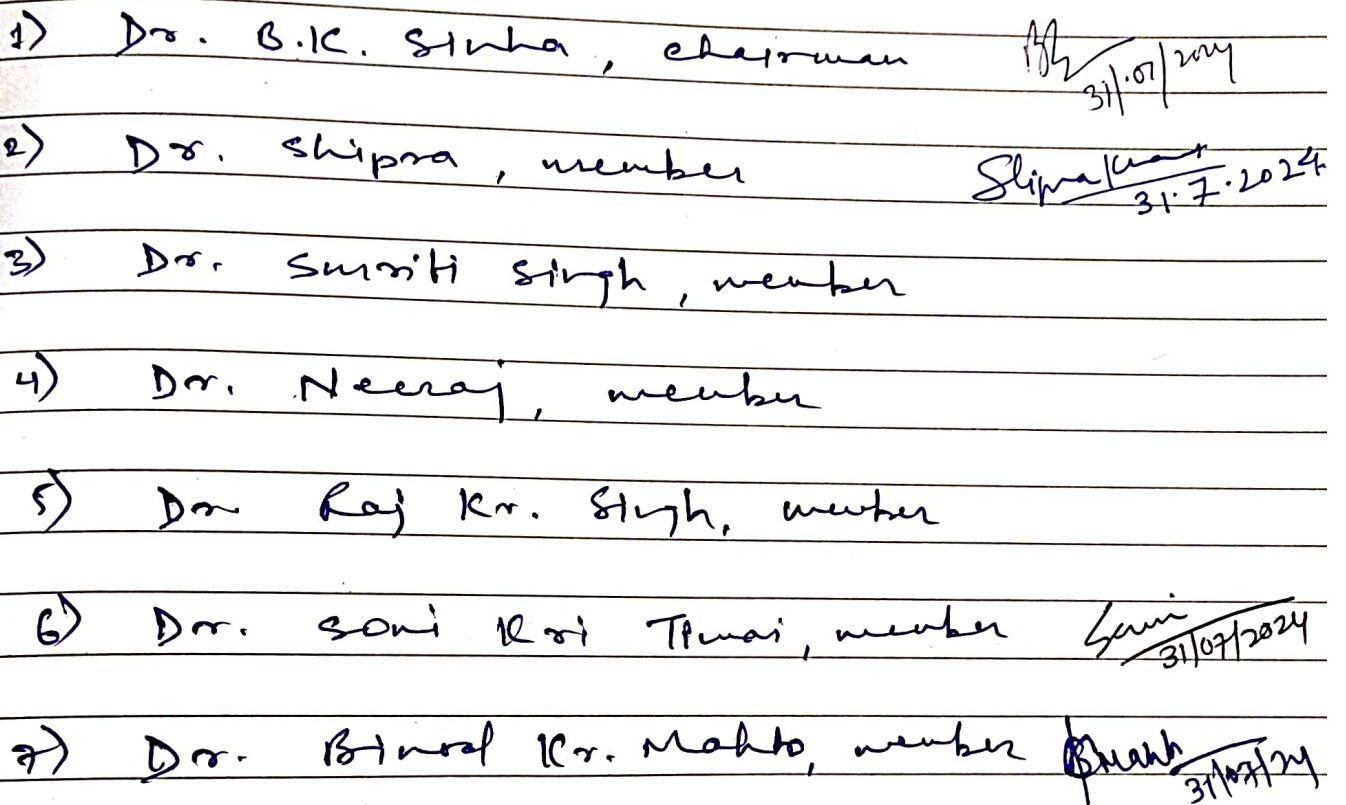 1) Dr. B.K. Sinha, chairman 31/07/2024
2) Dr. Shipra, member Shipra Kumari 31.7.2024
3) Dr. Smriti Singh, member
4) Dr. Neeraj, member
5) Dr Raj Kr. Singh, member
6) Dr. Soni Kri Tiwari, member Soni 31/07/2024
7) Dr. Binod Kr. Mahto, member 31/07/24